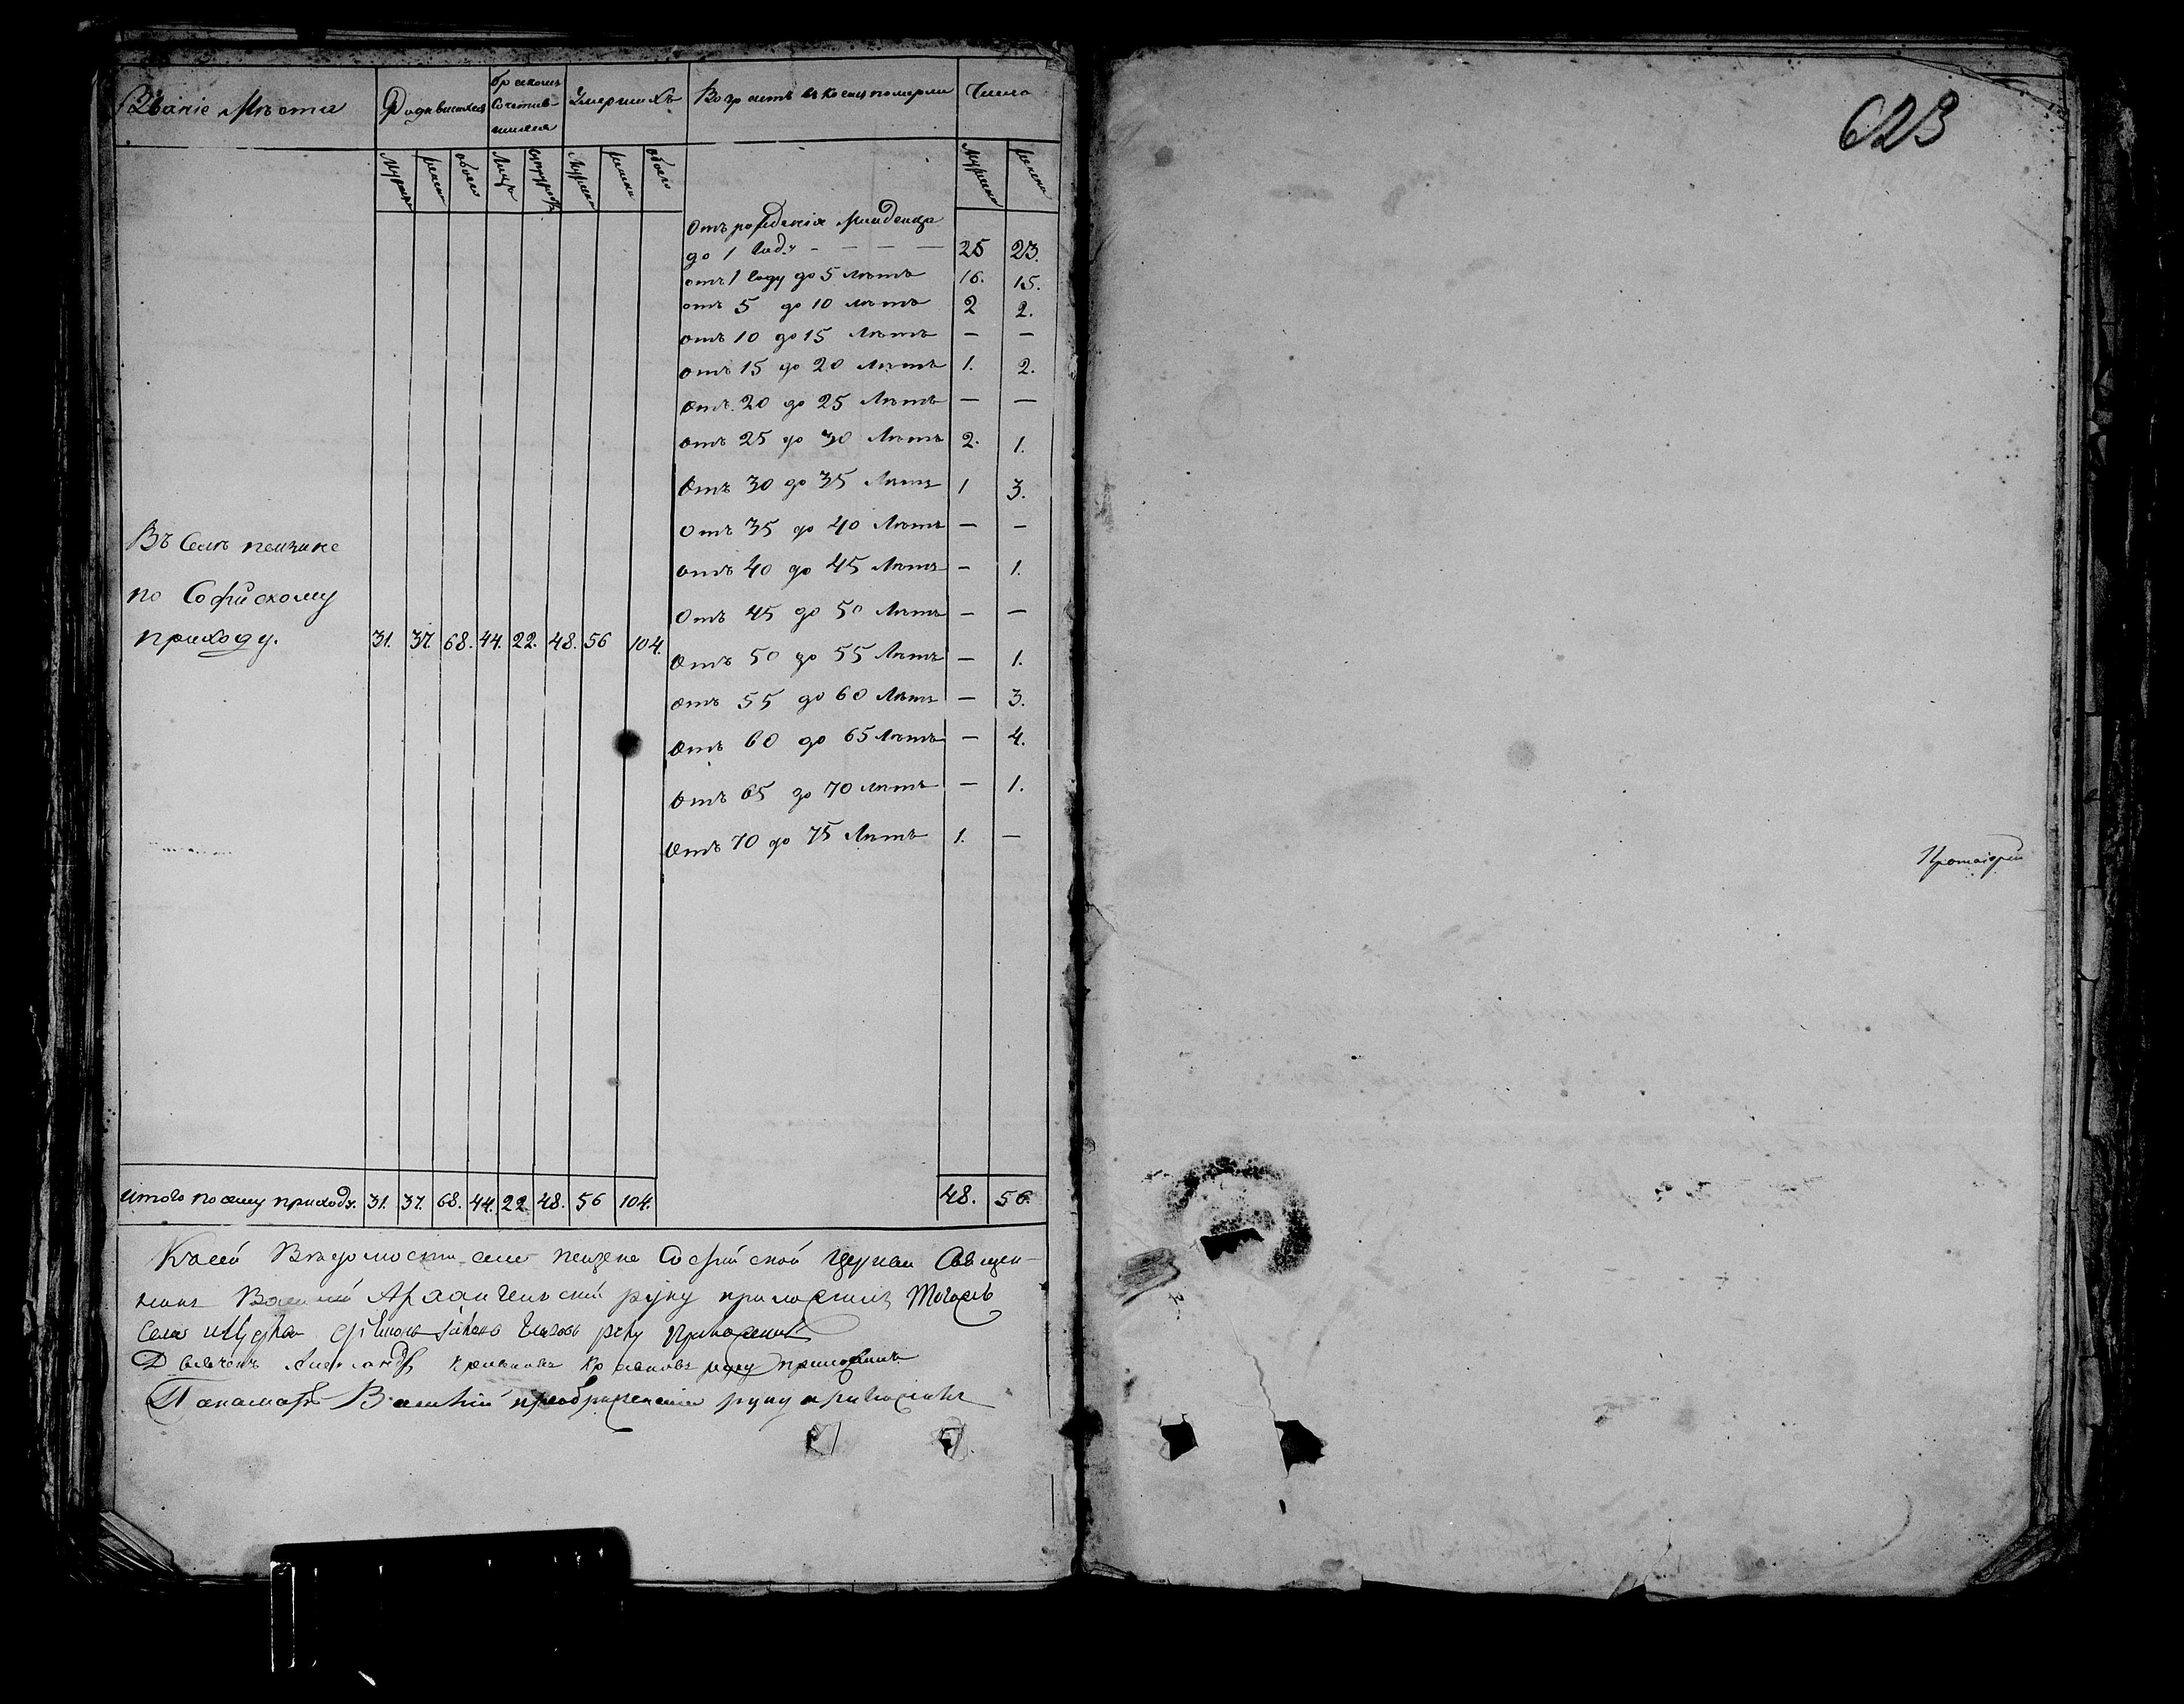 Званіе Мѣста Родившихся бракомъ Сочетав-шихся Умершихъ Возрастъ въ коемъ померли Число
Мужеска женска обоего Лицъ супружествъ Мужеска женска обоего Мужеска женска
Отъ рожденія Младенца
до 1 году - — — — 25 23.
отъ 1 году до 5 лѣтъ 16. 15.
отъ 5 до 10 лѣтъ 2 2.
отъ 10 до 15 лѣтъ — —
отъ 15 до 20 лѣтъ 1. 2.
отъ 20 до 25 лѣтъ — —
отъ 25 до 30 лѣтъ 2. 1.
Отъ 30 до 35 лѣтъ 1 3.
Отъ 35 до 40 лѣтъ — —
Въ Селѣ
отъ 40 до 45 лѣтъ — 1.
по Софійскому
Отъ 45 до 50 лѣтъ — —
приходу. 31. 37. 68. 44. 22. 48. 56 104.
Отъ 50 до 55 лѣтъ — 1.
отъ 55 до 60 лѣтъ — 3.
Отъ 60 до 65 лѣтъ — 4.
Отъ 65 до 70 лѣтъ — 1.
Отъ 70 до 75 лѣтъ 1. —
итого по сему приходу. 31. 37. 68. 44. 22 48. 56 104. 48. 56.
Къ сей Вѣдомости села Софійской церкви Священ-
никъ Архангельскій руку приложилъ Тогожъ
Села руку приложилъ
руку приложилъ
Панамарь Василій Преображенскій руку приложилъ
623
Протоіерей